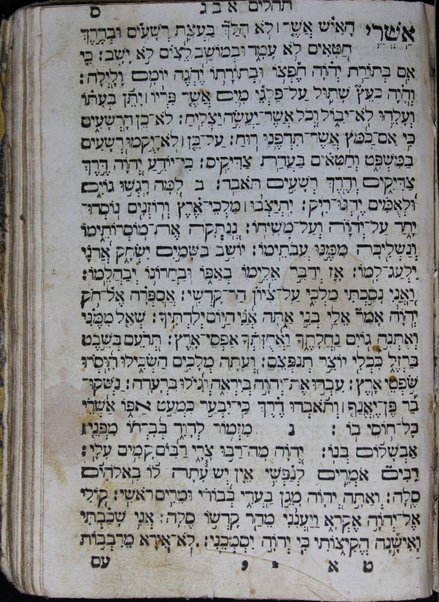 תהלים א ב ג ס
אשרי האיש אשר ׀ לא הלך בעצת רשעים ובדרך
חטאים לא עמד ובמושב לצים לא ישב: כי
אם בתורת יהוה חפצו ובתורתו יהגה יומם ולילה:
והיה כעץ שתול על פלגי מים אשר פריו ׀ יתן בעתו
ועלהו לא יבול וכל אשר יעשה יצליח: לא כן הרשעים
כי אם כמץ אשר תדפנו רוח: על כן ׀ לא יקמו רשעים
במשפט וחטאים בעדת צדיקים: כי יודע יהוה דרך
צדיקים ודרך רשעים תאבד: ב למה רגשו גוים
ולאמים יהגו ריק: יתיצבו ׀ מלכי ארץ ורוזנים נוסדו
יחד על יהוה ועל משיחו: ננתקה את מוסרותימו
ונשליכה ממנו עבתימו: יושב בשמים ישחק אדני
ילעג למו: אז ידבר אלימו באפו ובחרונו יבהלמו:
ואני נסכתי מלכי על ציון הר קדשי: אספרה אל חק
יהוה אמר אלי בני אתה אני היום ילדתיך: שאל ממני
ואתנה גוים נחלתך ואחזתך אפסי ארץ: תרעם בשבט
ברזל ככלי יוצר תנפצם: ועתה מלכים השכילו הוסרו
שפטי ארץ: עבדו את יהוה ביראה וגילו ברעדה: נשקו
בר פן יאנף ׀ ותאבדו דרך כי יבער כמעט אפו אשרי
כל חוסי בו: ג מזמור לדוד בברחו מפני ׀
אבשלום בנו: יהוה מה רבו צרי רבים קמים עלי:
רבים אמרים לנפשי אין ישועתה לו באלהים
סלה: ואתה יהוה מגן בעדי כבודי ומרים ראשי: קולי
אל יהוה אקרא ויענני מהר קדשו סלה: אני שכבתי
ואישנה הקיצותי כי יהוה יסמכני: לא אירא מרבבות
ט א עם